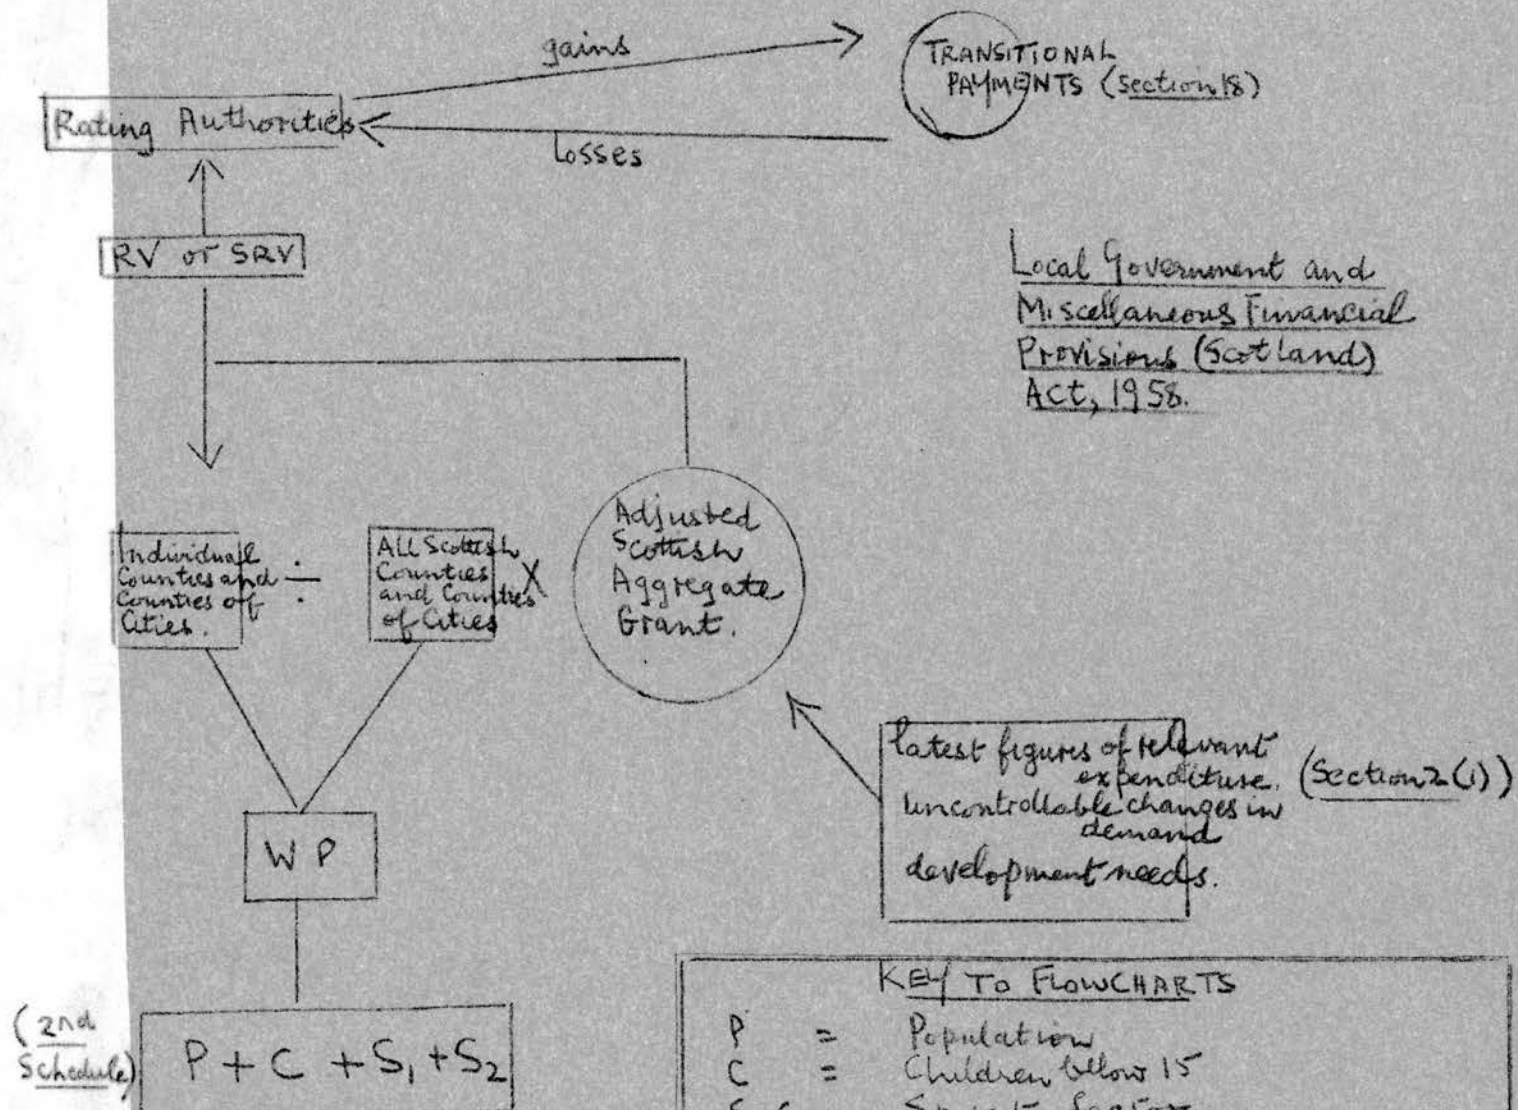 gains
TRANSITIONAL
PAYMENTS (Section 18)
Rating Authorities
Losses
RV or SRV
Local Government and
Miscellaneous Financial
Provisions (Scotland)
Act, 1958.
Individual
Counties and
Counties of
Cities.
÷
ALL Scottish
Counties
and Counties
of Cities
X
Adjusted
Scottish
Aggregate
Grant.
latest figures of relevant
expenditure. (Section 2 (1))
uncontrollable changes in
demand
development needs.
W P
KEY TO FLOWCHARTS
(2nd
Schedule)
P + C + S₁ + S₂
P = Population
C = Children below 15